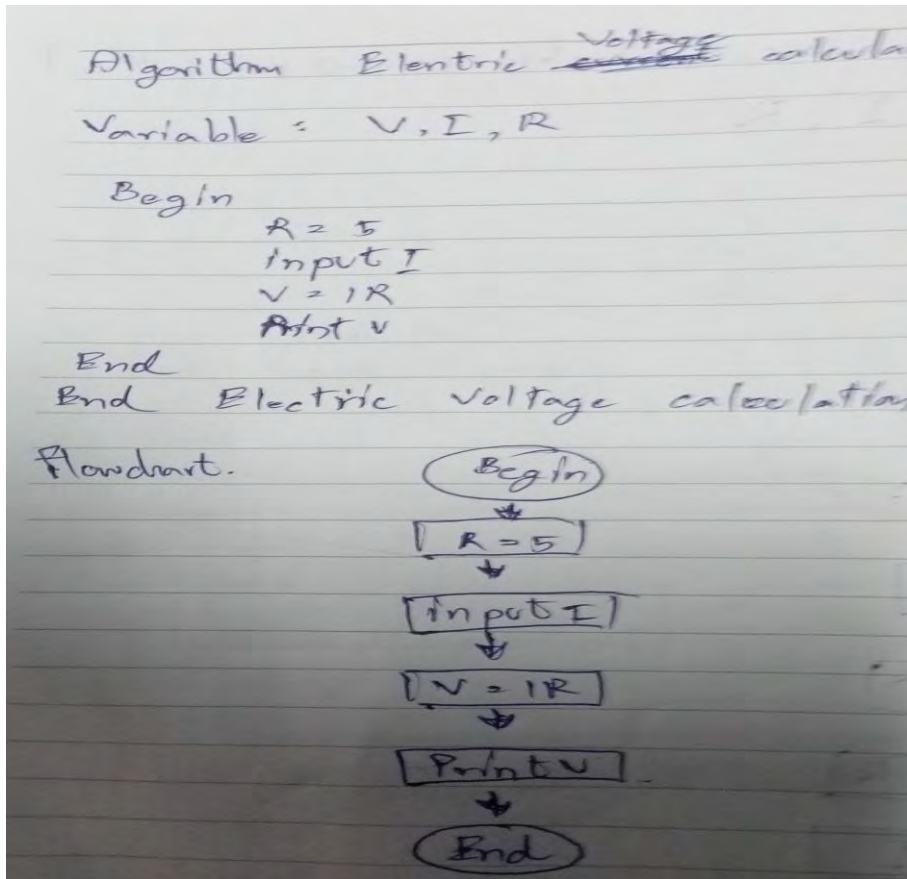 Algorithm Elentric Voltage calcula
Variable : V, I, R
Begin
R = 5
input I
V = IR
Print V
End
End Electric Voltage calculation
Flowchart.
Begin
R = 5
input I
V = IR
Print V
End